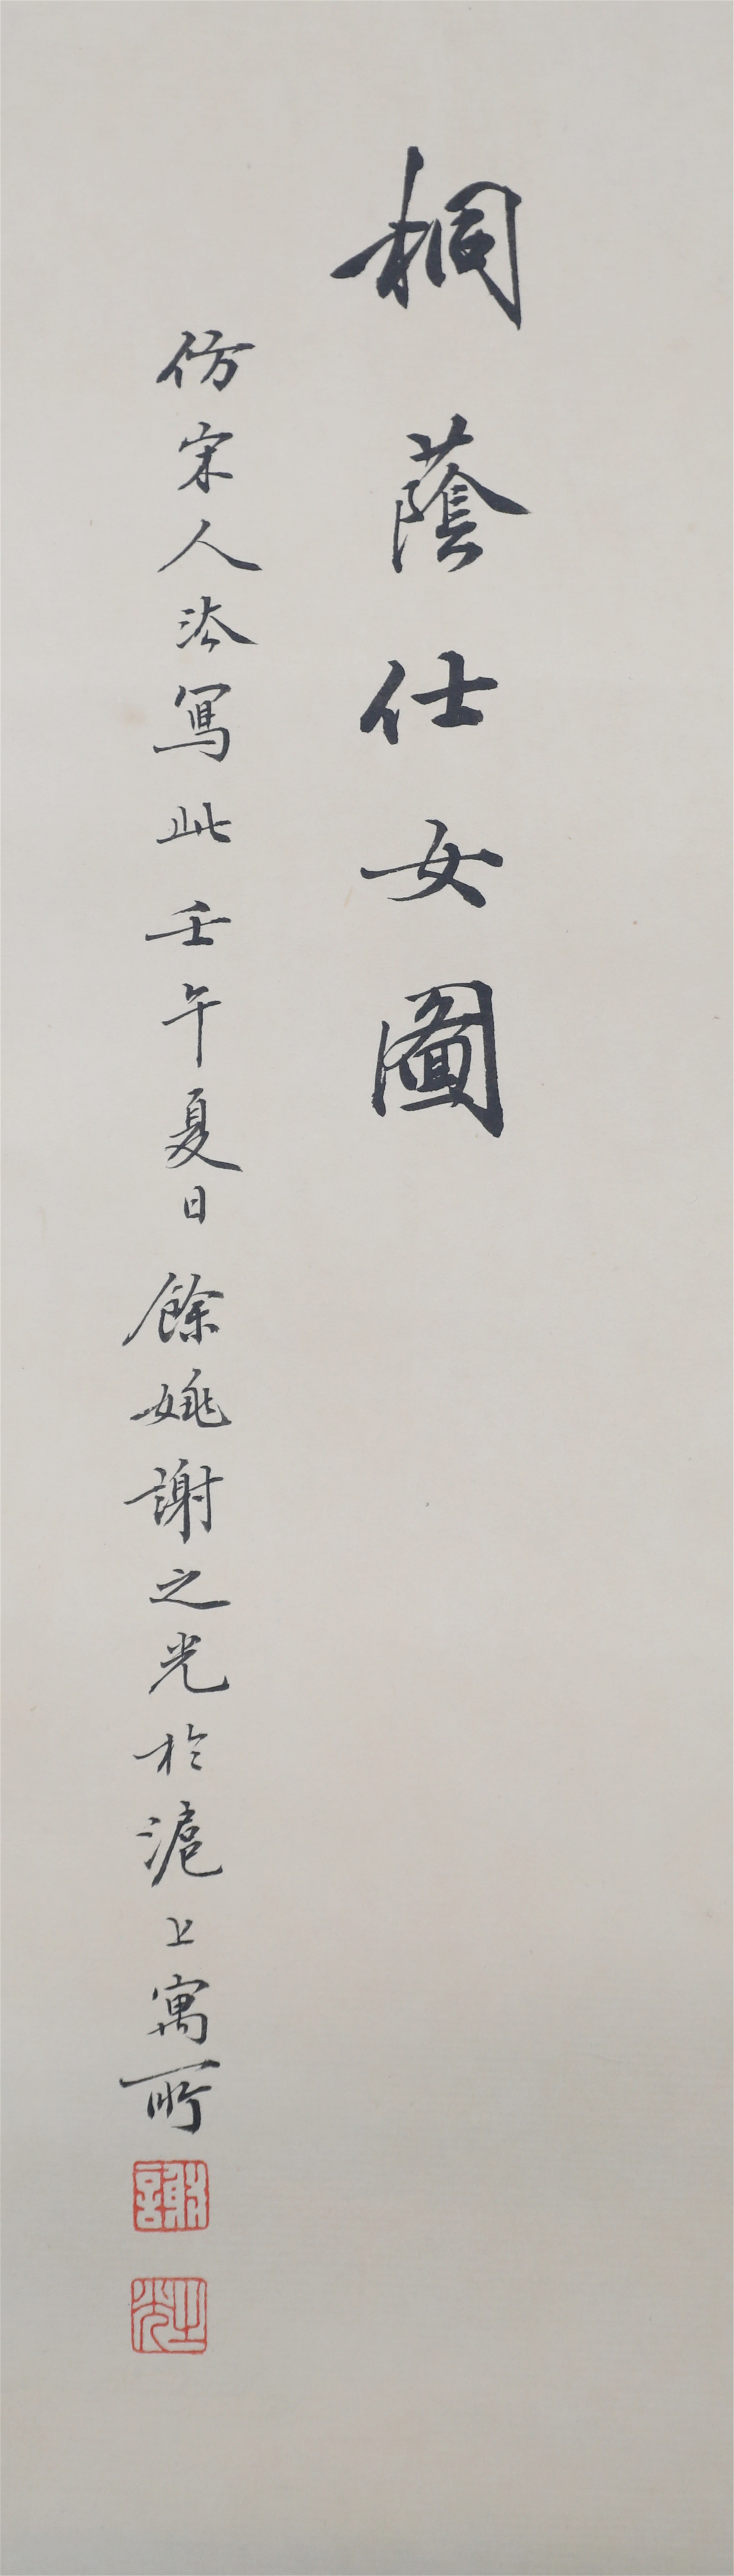 桐蔭仕女圖
仿宋人法寫此壬午夏日餘姚謝之光於滬上寓所
謝
之光